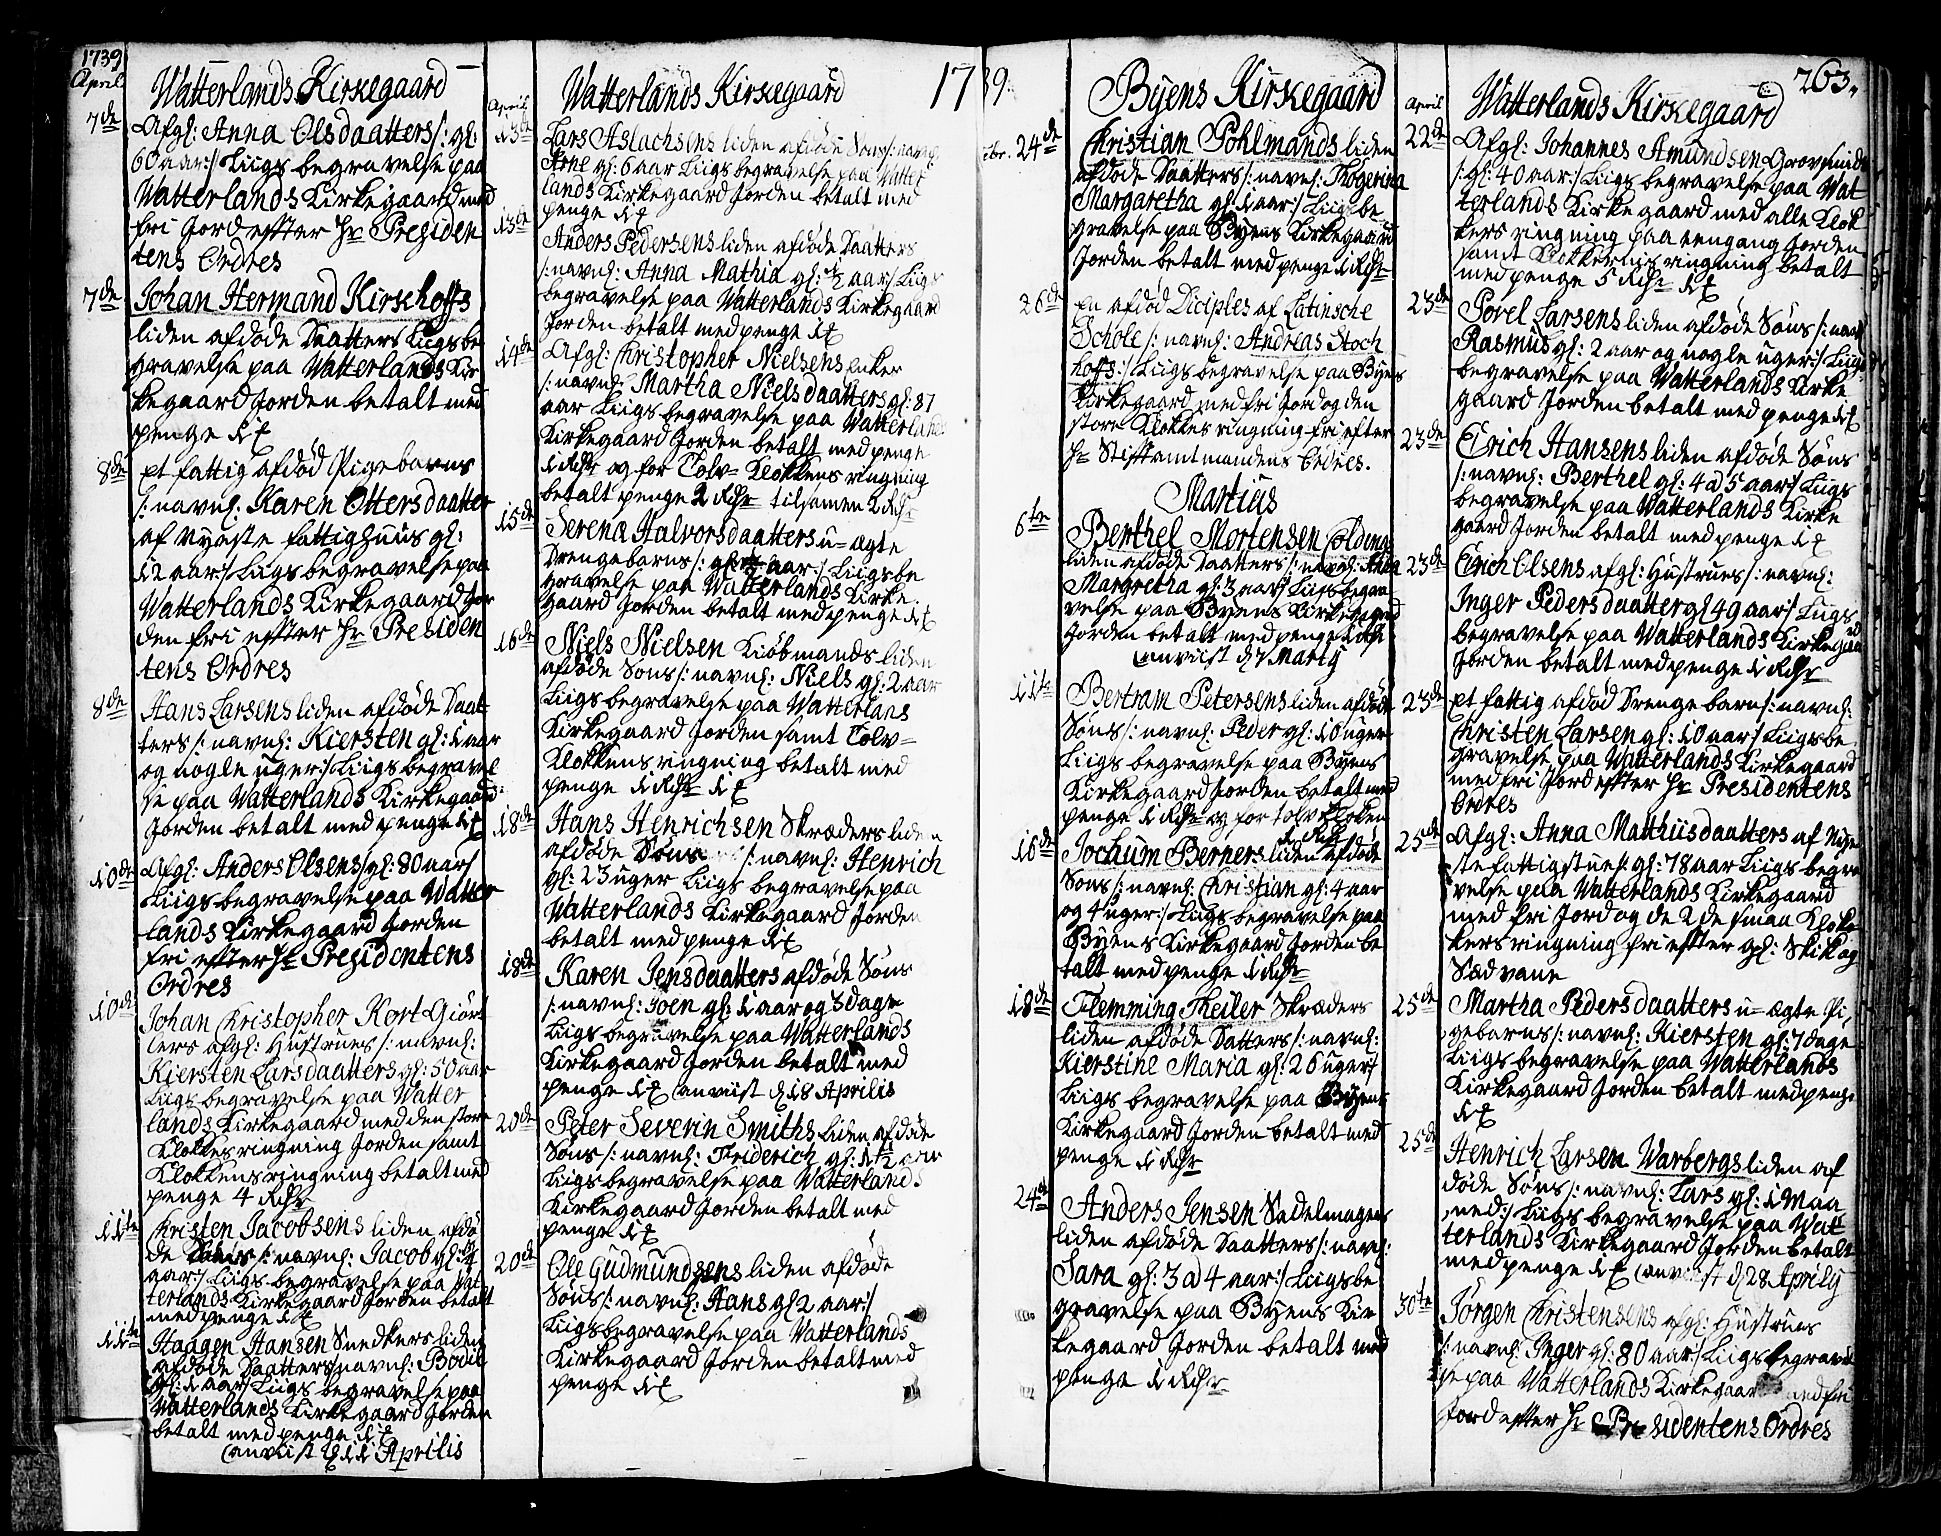 1739
April
Watterlands Kirkegaard
7de
Afgl: Anna Olsdaatters /: gl:
60 aar:/ Liigs begravelse paa
Watterlands Kirkegaard med
fri Jord effter Hr Presiden
tens Ordres
7de
Johan Hermand Kirschoffs
liden afdöde Daatters Liigs be
gravelse paa Watterlands Kir
kegaard Jorden betalt med
penge
8de
Et fattig afdöd Pigebarns
/: navnl: Karen Ottersdaatter
af Nyeste fattighuus gl:
12 aar:/ Liigs begravelse paa
Watterlands Kirkegaard Jor
den fri effter Hr Presiden
tens Ordres
8de
Hans Larsens liden afdöde Daat
ters /: navnl: Kiersten gl: 1 aar
og nogle uger:/ Liigs begravel
se paa Watterlands Kirkegaard
Jorden betalt med penge
10de
Afgl: Anders Olsens /gl: 80 aar/
Liigs begravelse paa Watter
lands Kirkegaard Jorden
fri effter Hr Presidentens
Ordres
10de
Johan Christopher Kort Giört
lers afgl: Hustrues /: navnl:
Kiersten Larsdaatters gl: 50 aar
Liigs begravelse paa Watter
lands Kirkegaard med den store
Klokkes ringning Jorden samt
Klokkens ringning betalt med
penge 4 Rdr
11te
Christen Jacobsens liden afdö
de Söns /: navnl: Jacob gl:
aar:/ Liigs begravelse paa Wat
terlands Kirkegaard Jorden betalt
med penge
11te
Haagen Hansen Snedkers liden
afdöde Daatters navnl: Bodil
gl: 1 aar/ Liigs begravelse paa
Watterlands Kirkegaard Jorden
betalt med penge
anviist d 11 Aprilis
Watterlands Kirkegaard
17
April
13de
Lars Aslachsens liden afdöde Söns /: navnl:
Arne gl: 6 aar Liigs begravelse paa Watter
lands Kirkegaard Jorden betalt med
penge
13de
Anders Pedersens liden afdöde Daatters
/: navnl: Anna Mathia gl: 1/2 aar:/ Liigs
begravelse paa Watterlands Kirkegaard
Jorden betalt med penge
14de
Afgl: Christopher Nielsens Enker
/: navnl: Martha Nielsdaatters gl: 87
aar Liigs begravelse paa Watterlands
Kirkegaard Jorden betalt med penge
1 Rdr og for Tolv= Klokkens ringning
betalt penge 2 Rdr tilsamen 2 Rdr
15de
Serena Halvorsdaatters u=ægte
Drengebarns /: gl: aar:/ Liigs be
gravelse paa Watterlands Kirke
gaard Jorden betalt med penge
16de
Niels Nielsen Kiöbmands liden
afdöde Söns /: navnl: Niels gl: 2 aar
Liigs begravelse paa Watterlans
Kirkegaard Jorden samt Tolv=
Klokkens ringning betalt med
penge 1 Rdr
18de
Hans Henrichsen Skræders liden
afdöde Söns /: navnl: Henrich
gl: 23 uger Liigs begravelse paa
Watterlands Kirkegaard Jorden
betalt med penge
18de
Karen Jensdaatters afdöde Söns
/: navnl: Joen gl: 1 aar og 8 dage
Liigs begravelse paa Watterlands
Kirkegaard Jorden betalt med
penge anviist d 18 Aprilis
20de
Peter Severin Smiths liden afdöde
Söns /: navnl: Friderich gl: 1 1/2 aar
Liigs begravelse paa Watterlands
Kirkegaard Jorden betalt med
penge
20de
Ole Gudmundsens liden afdöde
Söns /: navnl: Hans gl 2 aar:/
Liigs begravelse paa Watterlands
Kirkegaard Jorden betalt med
penge
39.
Byens Kirkegaard
24de
Christian Pohlmands liden
afdöde Daatters /: navnl: Thogerina
Margaretha gl: 1 aar:/ Liigs be
gravelse paa Byens Kirkegaard
Jorden betalt med penge 1 Rdr
26de
En afdöd Diciples af Latinsche
Schole /: navnl: Andreas Stoch
hoffs:/ Liigs begravelse paa Byens
Kirkegaard med fri Jord og den
store Klokkes ringning fri efter
Hr Stiftamtmandens Ordres.
Martius
6te
Berthel Mortensen Coldings
liden afdöde Daatters /: navnl: Anna
Margretha gl: 3 aar:/ Liigs begra
velse paa Byens Kirkegaard
Jorden betalt med penge 1 Rdr
anviist d 7 Martij
11te
Bertram Petersens liden afdöde
Söns /: navnl: Peder gl: 10 uger
Liigs begravelse paa Byens
Kirkegaard Jorden betalt med
penge 1 Rdr og for tolv Kloken
1 Rdr
16de
Jochum Berners liden afdöde
Söns /: navnl: Christian gl: 4 aar
og 4 uger:/ Liigs begravelse paa
Byens Kirkegaard Jorden be
talt med penge 1 Rdr
18de
Flemming Theiler Skræders
liden afdöde Datters /: navnl:
Kierstine Maria gl: 26 uger/
Liigs begravelse paa Byens
Kirkegaard Jorden betalt med
penge 1 Rdr
24de
Anders Jensen Sadelmagers
liden afdöde Daatters /: navnl:
Sara gl: 3 a 4 aar:/ Liigs be
gravelse paa Byens Kir
kegaard Jorden betalt med
penge 1 Rdr
263.
April
Watterlands Kirkegaard
22de
Afgl: Johannes Amundsen Grovsmids
/: gl: 40 aar:/ Liigs begravelse paa Wat
terlands Kirkegaard med alle Klok
kers ringning paa eengang Jorden
samt Klokkernes ringning betalt
med penge 5 Rdr
23de
Povel Larsens liden afdöde Söns /: navnl
Rasmus gl: 2 aar og nogle uger:/ Liigs
begravelse paa Watterlands Kirke
gaard Jorden betalt med penge
23de
Erich Hansens liden afdöde Söns
/: navnl: Berthel gl: 4 a 5 aar:/ Liigs
begravelse paa Watterlands Kirke
gaard Jorden betalt med penge
23de
Erich Olsens afgl: Hustrues /: navnl:
Inger Pedersdaatter gl 49 aar:/ Liigs
begravelse paa Watterlands Kirkegaard
Jorden betalt med penge 1 Rdr
23de
Et fattig afdöd Drengebarn /: navnl:
Christen Larsen gl: 10 aar:/ Liigs be
gravelse paa Watterlands Kirkegaard
med fri Jord effter Hr Presidentens
Ordres
25de
Afgl: Anna Matthiisdaatters af Nye
ste fattigstue gl: 78 aar Liigs begra
velse paa Watterlands Kirkegaard
med fri Jord og de 2de smaa Klok
kers ringning fri effter gl: Skik og
Sædvane
25de
Martha Pedersdaatters u=ægte Pi,
gebarns /: navnl: Kiersten gl: 7 dage
Liigs begravelse paa Watterlands
Kirkegaard Jorden betalt med penge
25de
Henrich Larsen Warbergs liden af
döde Söns /: navnl: Lars gl: 1 Maa
ned:/ Liigs begravelse paa Wat
terlands Kirkegaard Jorden betalt
med penge anviist d 28 Aprilij
30te
Jörgen Christensens afgl: Hustrues
/: navnl: Inger gl: 80 aar:/ Liigs begravel
se paa Watterlands Kirkegaard med fri
Jord effter Hr Presidentens Ordres